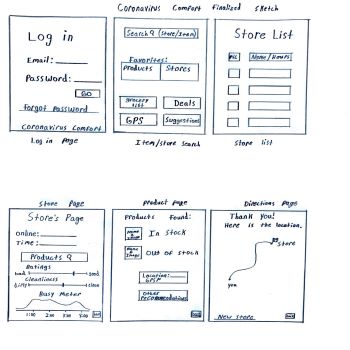 Coronavirus Comfort finalized sketch
Log in
Email:
Password:
GO
forgot password
Coronavirus Comfort
Log in Page
Search (Store/Item)
Favorites:
Products
Stores
Grocery List
Deals
GPS
Suggestions
Item/store search
Store List
Pic
Name/Hours
Store list
Store Page
Store's Page
online:
Time:
Products
Ratings
bad
good
Cleanliness
dirty
clean
Busy Meter
1:00 2:00 3:00 4:00
Product Page
Products Found:
Name & Image
In Stock
Name & Image
Out of Stock
Location:
GPS?
Other
Recommendations
Directions Page
Thank you!
Here is the location.
Store
you
New Store